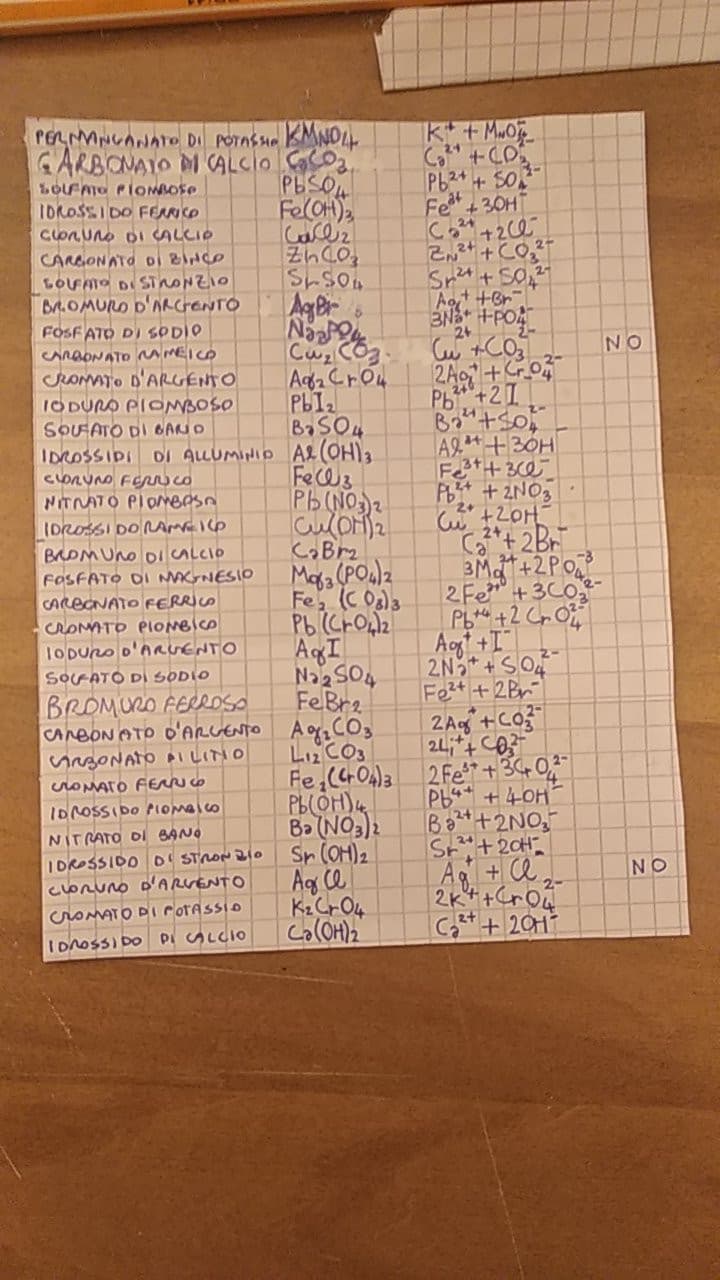 PERMANGANATO DI POTASSIO KMnO4 K+ + MnO4-
CARBONATO DI CALCIO CaCO3 Ca2+ + CO3 2-
SOLFATO PIOMBOSO PbSO4 Pb2+ + SO4 2-
IDROSSIDO FERRICO Fe(OH)3 Fe3+ + 3OH-
CLORURO DI CALCIO CaCl2 Ca2+ + 2Cl-
CARBONATO DI ZINCO ZnCO3 Zn2+ + CO3 2-
SOLFATO DI STRONZIO SrSO4 Sr2+ + SO4 2-
BROMURO D'ARGENTO AgBr Ag+ + Br-
FOSFATO DI SODIO Na3PO4 3Na+ + PO4-
CARBONATO RAMEICO Cu2CO3 Cu2+ + CO3 2- NO
CROMATO D'ARGENTO Ag2CrO4 2Ag+ + CrO4 2-
IODURO PIOMBOSO PbI2 Pb2+ + 2I-
SOLFATO DI BARIO BaSO4 Ba2+ + SO4 2-
IDROSSIDI DI ALLUMINIO Al(OH)3 Al3+ + 3OH-
CLORURO FERRICO FeCl3 Fe3+ + 3Cl-
NITRATO PIOMBOSO Pb(NO3)2 Pb2+ + 2NO3-
IDROSSIDO RAMEICO Cu(OH)2 Cu2+ + 2OH-
BROMURO DI CALCIO CaBr2 Ca2+ + 2Br-
FOSFATO DI MAGNESIO Mg3(PO4)2 3Mg2+ + 2PO4-3
CARBONATO FERRICO Fe2(CO3)3 2Fe3+ + 3CO3 2-
CROMATO PIOMBICO Pb(CrO4)2 Pb+4 + 2CrO4 2-
IODURO D'ARGENTO AgI Ag+ + I-
SOLFATO DI SODIO Na2SO4 2Na+ + SO4 2-
BROMURO FERROSO FeBr2 Fe2+ + 2Br-
CARBONATO D'ARGENTO Ag2CO3 2Ag+ + CO3 2-
CARBONATO DI LITIO Li2CO3 2Li+ + CO3 2-
CROMATO FERRICO Fe2(CrO4)3 2Fe3+ + 3CrO4 2-
IDROSSIDO PIOMBICO Pb(OH)4 Pb4+ + 4OH-
NITRATO DI BARIO Ba(NO3)2 Ba2+ + 2NO3-
IDROSSIDO DI STRONZIO Sr(OH)2 Sr2+ + 2OH-
CLORURO D'ARGENTO AgCl Ag+ + Cl- NO
CROMATO DI POTASSIO K2CrO4 2K+ + CrO4 2-
IDROSSIDO DI CALCIO Ca(OH)2 Ca2+ + 2OH-